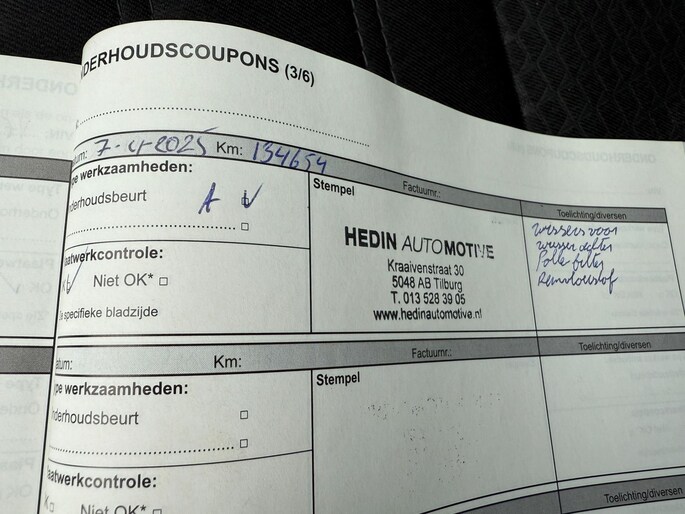 NDERHOUDSCOUPONS (3/6)
tum: 7-4-2025 Km: 134654
pe werkzaamheden:
derhoudsbeurt A
Stempel Factuurnr.:
Toelichting/diversen
wissers voor
wisser achter
Pollenfilter
Remvloeistof
HEDIN AUTOMOTIVE
Kraaivenstraat 30
5048 AB Tilburg
T. 013 528 39 05
www.hedinautomotive.nl
aatwerkcontrole:
Niet OK*
specifieke bladzijde
atum: Km:
Factuurnr.:
Toelichting/diversen
pe werkzaamheden:
nderhoudsbeurt
Stempel
aatwerkcontrole:
Niet OK*
Toelichting/diversen